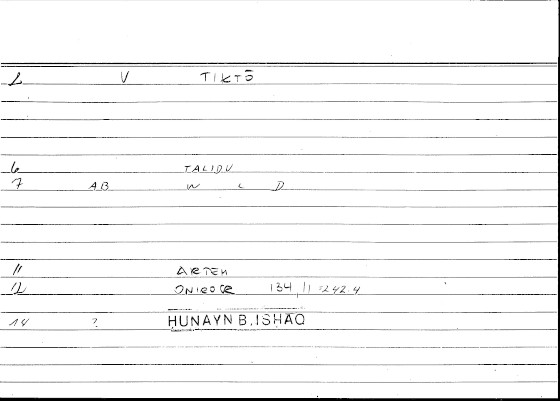 2 V TIKTŌ
6 TALIDU
7 AB W L D
11 ARTEM
12 ONIROCR 134,11=242.4
14 ? HUNAYN B.ISHAQ